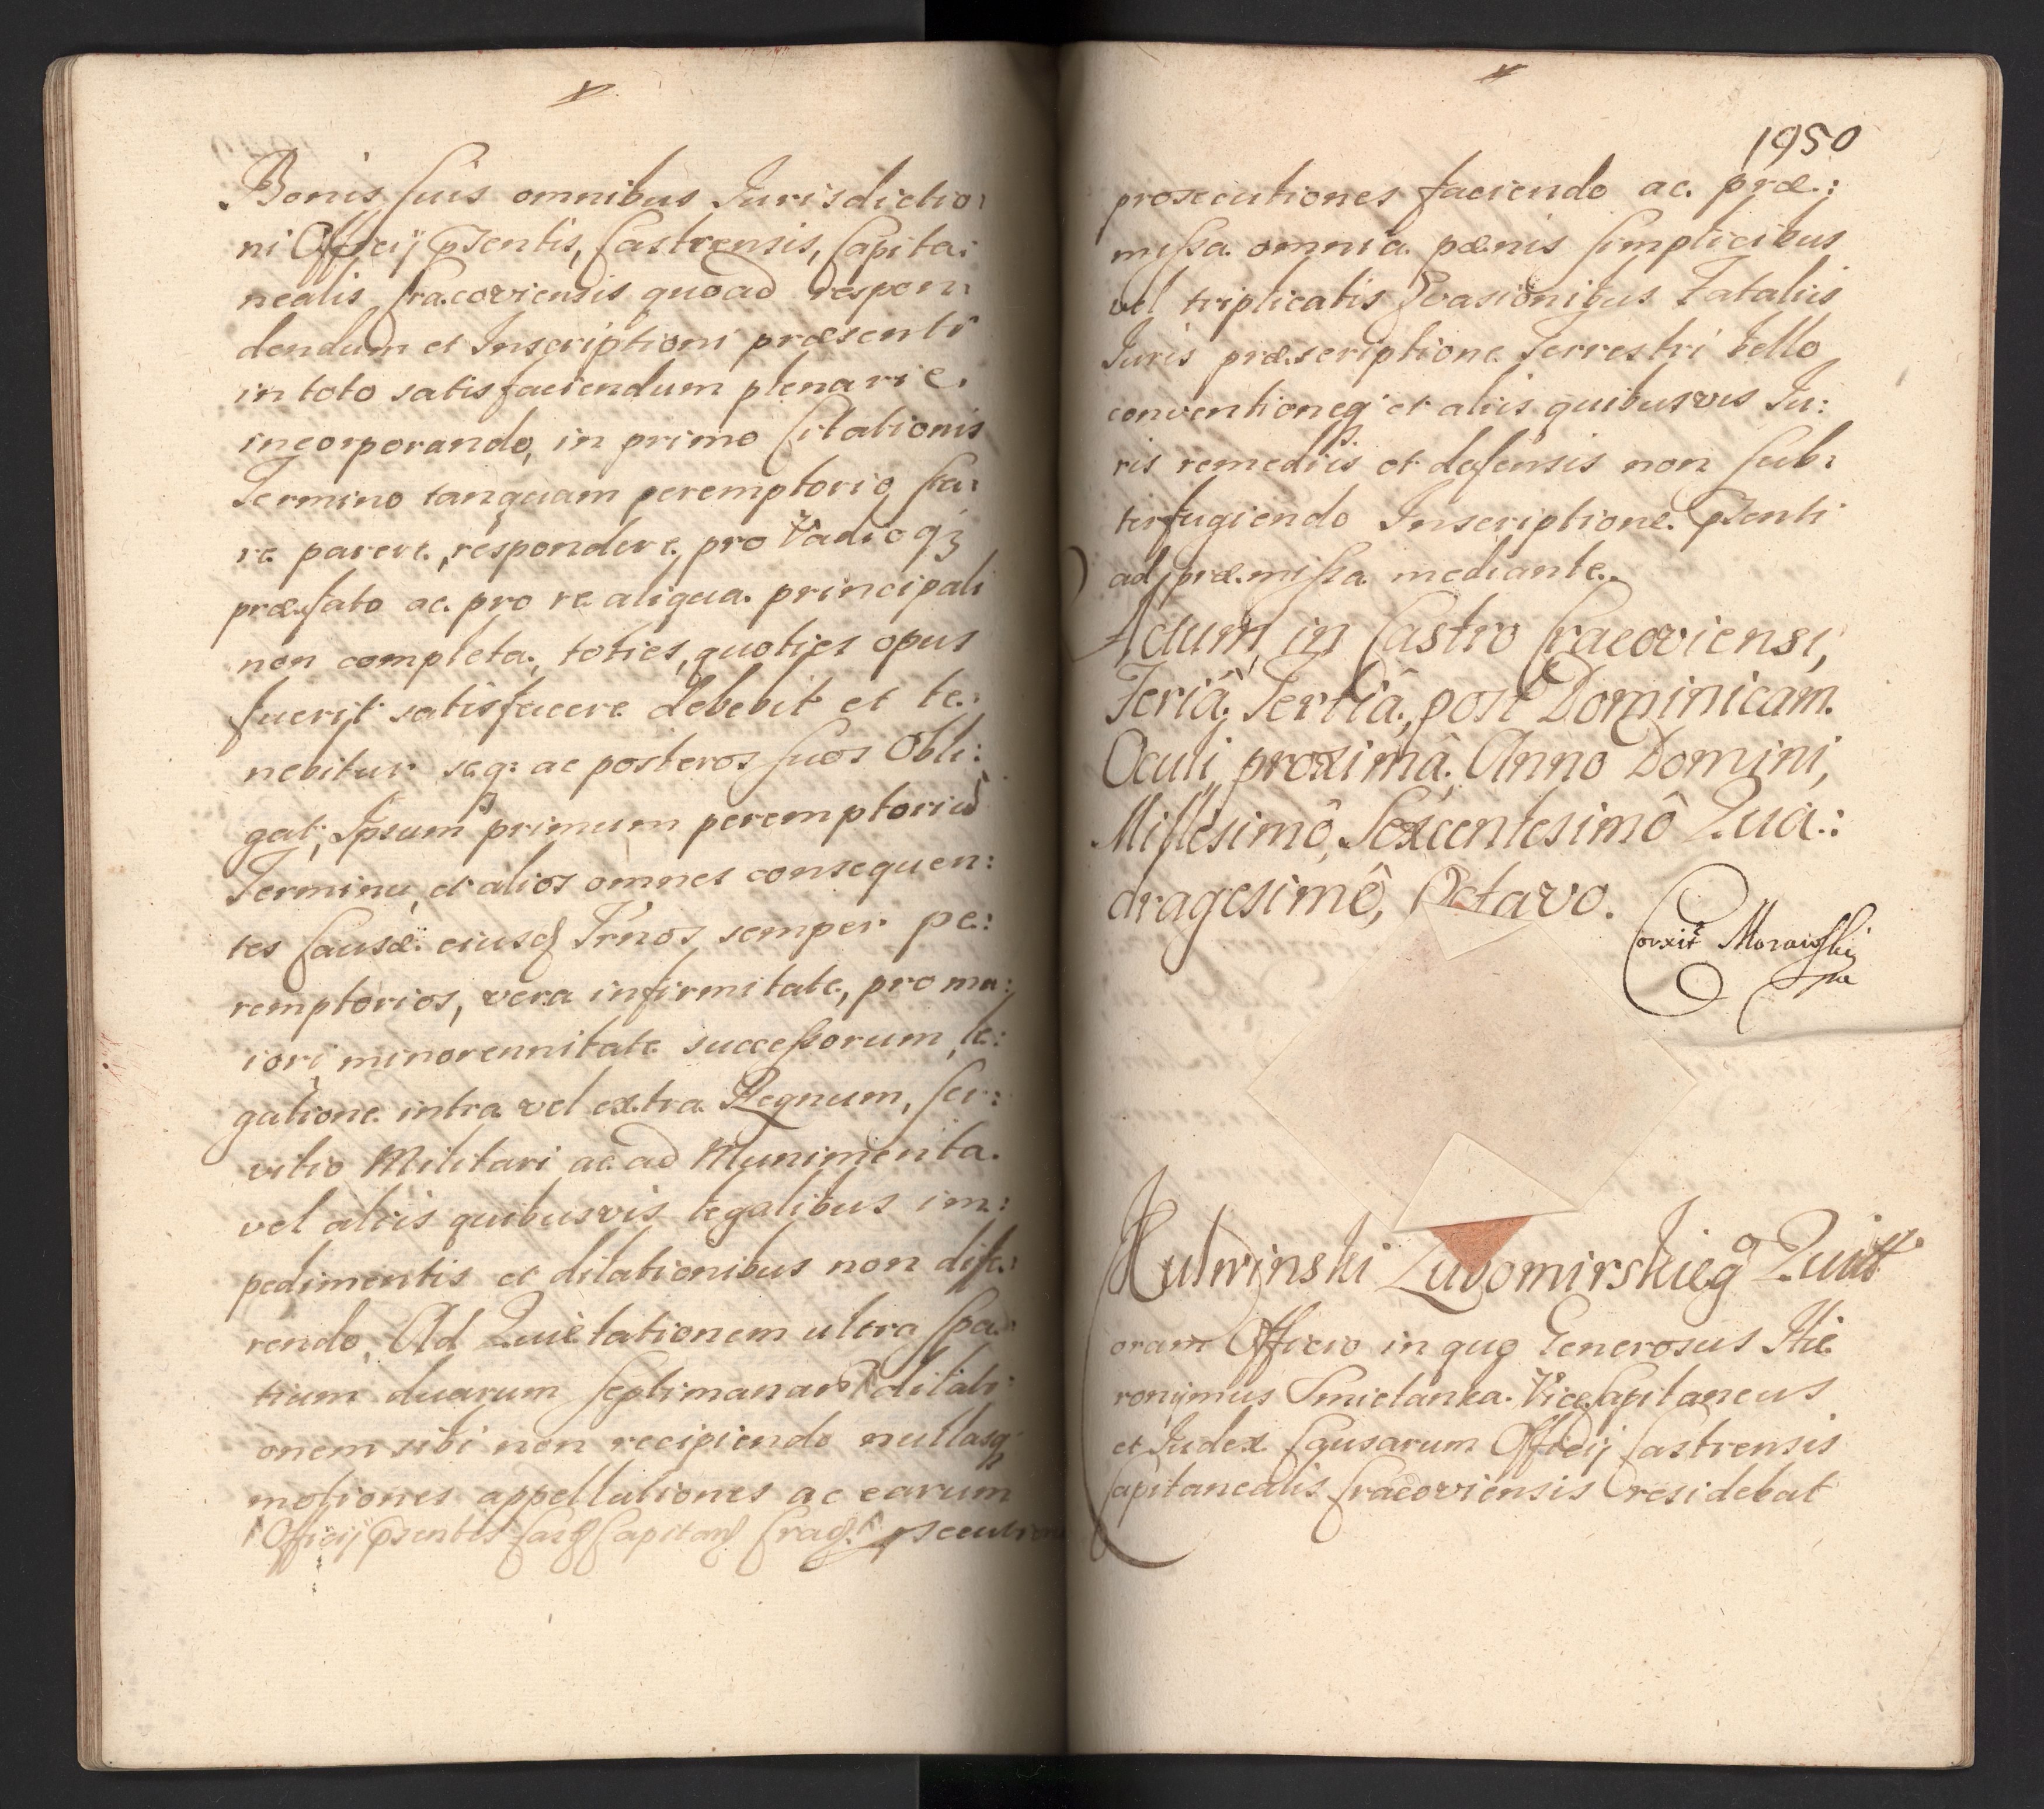 Bonis suis omnibus Jurisdictio:
ni Officij pSentis, Castrensis, Capita:
nealis Cracoviensis quoad respon:
dendum et Inscriptioni præsenti
in toto satisfaciendum plenarie.
incorporando, in primo Citationis
Termino tanquam peremptorio sta:
re parere, respondere, pro Vadioq3
præfato ac pro re aliqua principali
non completa, toties, quoties opus
fuerit satisfacere debebit et te:
nebitur seq: ac posteros suos Obli:
gat, Ipsum primum peremptoriu
Terminu, et alios omnes consequen:
tes Causæ eiusd Trnos semper pe:
remptorios, vera infirmitate, pro ma:
iori, minorennitate successorum, le:
gatione intra vel extra Regnum, ser:
vitio Militari ac ad Munimenta
vel aliis quibusvis legalibus im:
pedimentis et dilationibus non diffe:
rendo, Ad Quietationem ultra spa:
tium duarum septimanaru dilati:
onem sibi non recipiendo nullasq
motiones appellationes ac earum
Officij pSentis Cast Capitan Crac psecution
1950
prosecutiones faciendo ac præ:
missa omnia pænis simplicibus
vel triplicatis Evasionibus Fataliis
Juris præscriptione Terrestri bello
conventioneq et aliis quibusvis Ju:
ris remediis et defensis non sub:
terfugiendo Inscriptione pSenti
ad præmissa mediante.
Actum in Castro Cracoviensi,
Feriâ Tertiâ, post Dominicam
Oculi proximâ Anno Domini,
Millesimô, Sexcentesimô Qua:
dragesimô, Octavo.
Corxit Morawski
mp
Kulwinski Lubomirskiego Quitt
oram Officio in quo Generosus Hie
ronymus Smietanka ViceCapitaneus
et Judex Causarum Officij Castrensis
Capitanealis Cracoviensis residebat